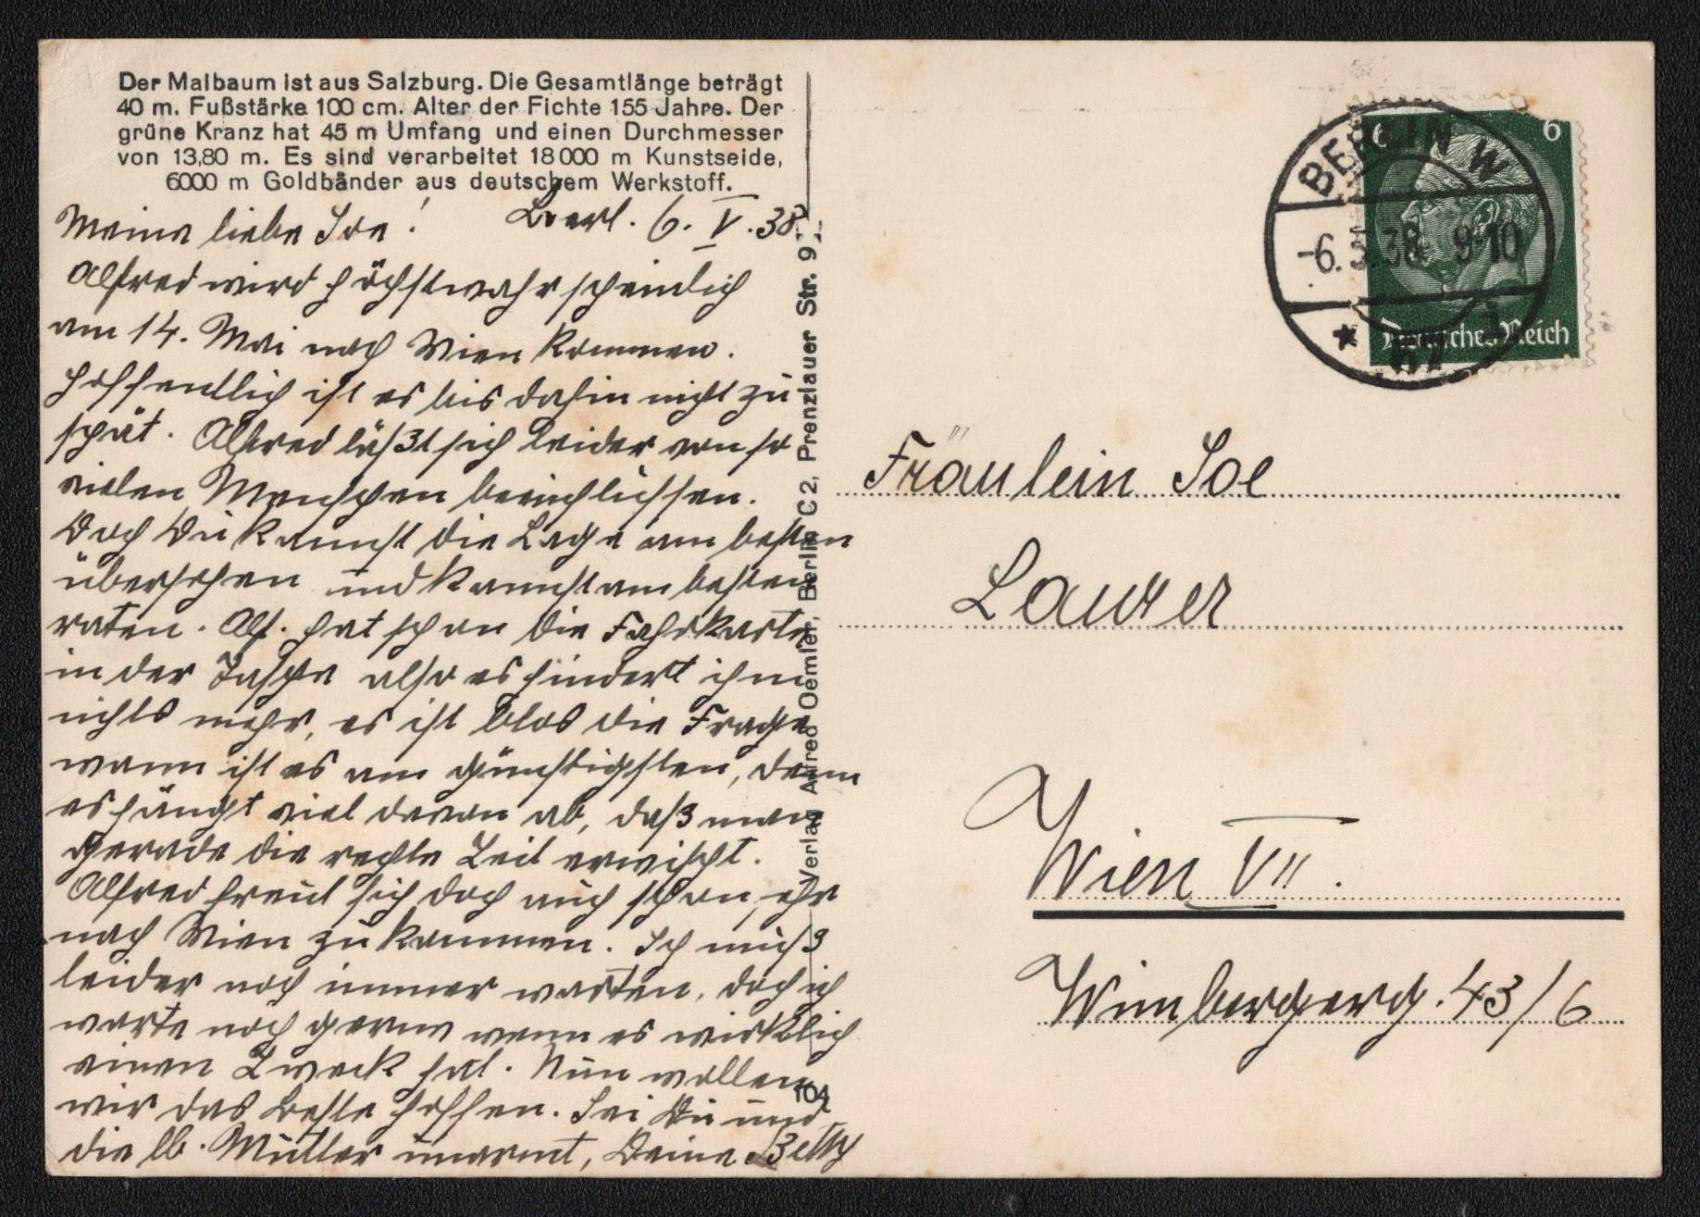 Der Maibaum ist aus Salzburg. Die Gesamtlänge beträgt
40 m. Fußstärke 100 cm. Alter der Fichte 155 Jahre. Der
grüne Kranz hat 45 m Umfang und einen Durchmesser
von 13,80 m. Es sind verarbeitet 18000 m Kunstseide,
6000 m Goldbänder aus deutschem Werkstoff.
Berl. 6. V. 38.
Meine liebe Soe!
Alfred wird höchstwahrscheinlich
am 14. Mai nach Wien kommen.
Hoffentlich ist es bis dahin nicht zu
spät. Alfred läßt sich leider von so
vielen Menschen beeinflussen.
Doch Du kannst die Lage am besten
übersehen und kannst am besten
raten. Alf. hat schon die Fahrkarte
in der Tasche also es hindert ihm
nichts mehr, es ist blos die Frage
wann ist es am günstigsten, denn
es hängt viel davon ab, daß man
gerade die rechte Zeit erwischt.
Alfred freut sich doch auch schon, sehr
nach Wien zu kommen. Ich muß
leider noch immer warten, doch ich
warte noch gerne wenn es wirklich
einen Zweck hat. Nun wollen
wir das Beste hoffen. Sei Du und
die lb. Mutter umarmt, Deine Betty
Verlag Alfred Oemler, Berlin C 2, Prenzlauer Str. 9
104
BERLIN W
-6.5.38 9-10
6
6
Deutsches Reich
Fräulein Soe
Laurer
Wien VII.
Wimbergerg. 43/6